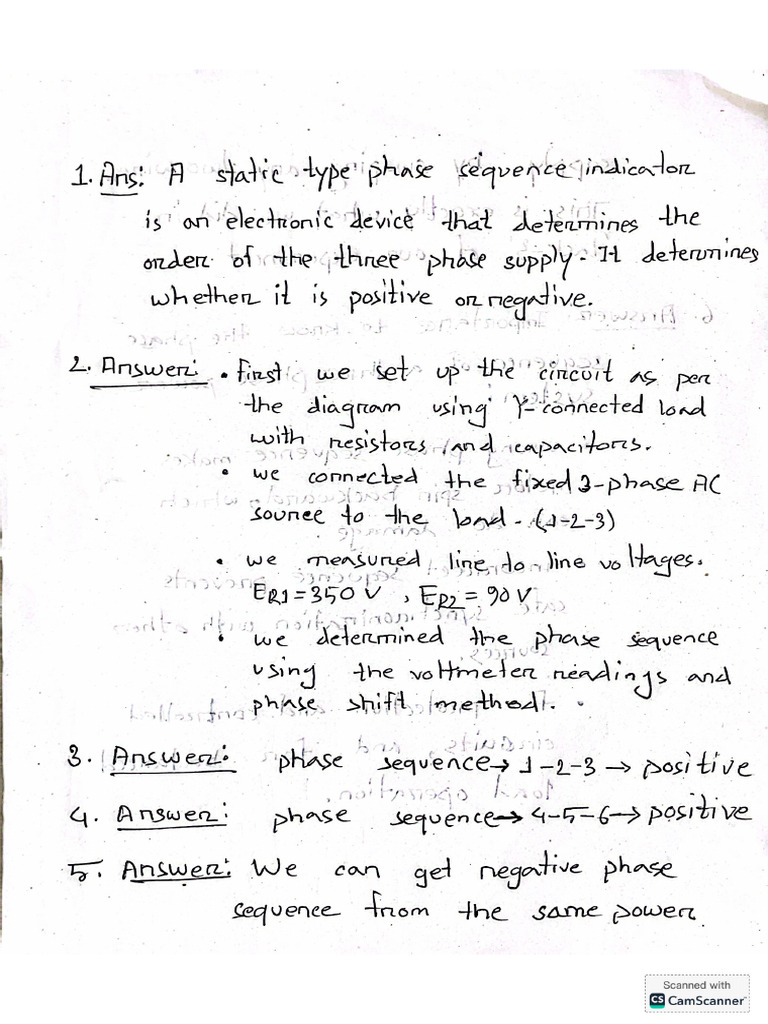 1. Ans: A static type phase sequence indicator
is an electronic device that determines the
order of the three phase supply. It determines
whether it is positive or negative.
2. Answer: • first we set up the circuit as per
the diagram using Y-connected load
with resistors and capacitors.
• we connected the fixed 3-phase AC
source to the load. (1-2-3)
• we measured line to line voltages.
ER1 = 350 V , ER2 = 90 V
• we determined the phase sequence
using the voltmeter readings and
phase shift method.
3. Answer: phase sequence → 1-2-3 → positive
4. Answer: phase sequence → 4-5-6 → positive
5. Answer: We can get negative phase
sequence from the same power
Scanned with
CS CamScanner